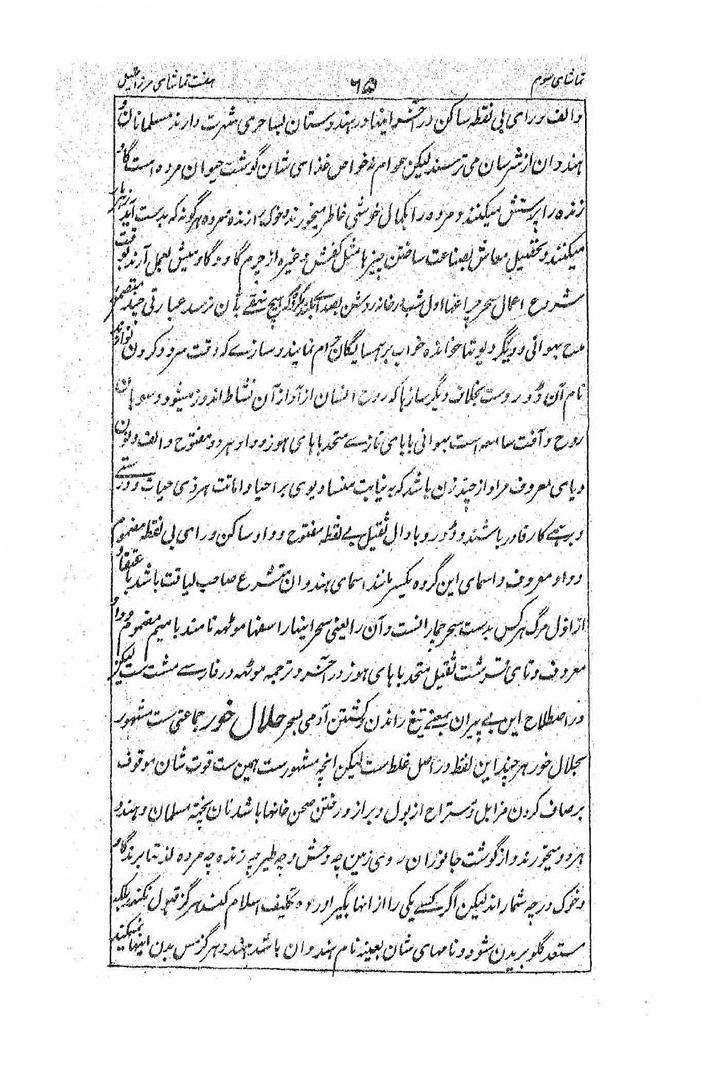 تماشای سوم ۶۵ هفت تماشای مرزا قتیل
والف و رای بی نقطه ساکن در آخر و اینها در هندوستان بساحری شهرت دارند مسلمانان و
هندوان از شرشان می ترسند لیکن عوام نه خواص غذای شان گوشت حیوان مرده است گاو
زنده را پرستش میکنند و مرده را بکمال خوشی خاطر میخورند و خوک را زنده و مرده هر گونه که بدست آید
میکنند و تحصیل معاش بصناعت ساختن چیزها مثل کفش وغیره از چرم گاو و گاومیش بعمل آرند
شروع اعمال سحر چراغها اول شب در خانه روشن بصد که هیچ بآن نرسد عبارتی چند متضمن
مدح بهوانی و دیگر دیوتها خوانده خواب بر همسایگان حرام نمایند و سازے که وقت سرود کردن نوازند
نام آن ڈورو ست بخلاف دیگر سازها که روح انسان از آواز آن نشاط اندوز میشود
روح و آفت سامعه است بهوانی با بای تازے متحد با های هوز و واو هر دو مفتوح و الف و نون
و یای معروف مراد از چند زن باشد که به نیابت مهادیو بر احیا و اماتت هر ذی حیات و درستے
و برهمے کار قادر باشند و ڈورو با دال ثقیل بے نقطه مفتوح و واو ساکن و رای بی نقطه مضموم
و واو معروف و اسمای این گروه یکسر مانند اسمای هندوان متشرع صاحب لیاقت باشد
از اول مرگ هر کس بدست سحر چمارانست و آن را یعنی سحر اینها را سفها موٹهه نامند با میم مضموم و واو
معروف و تای قرشت ثقیل متحد با های هوز در آخر و ترجمه موٹهه در فارسے مشت ست لیکن
در اصطلاح این بے پیران بمعنے تیغ راندن و کشتن آدمی بسحر حلال خور جماعتی ست مشهور
بحلال خور هر چند این لفظ در اصل غلط ست لیکن آنچه مشهور ست همین ست قوت شان موقوف
بر صاف کردن مزابل و مستراح از بول و براز و رفتن صحن خانها باشد نان پخته مسلمان و هندو
هر دو میخورند و از گوشت جانوران روی زمین چه وحش و چه طیر چه زنده چه مرده لذتها برند گاو
و خوک در چه شمار اند لیکن اگر کسے یکی را از انها بگیرد و تکلیف اسلام کند هرگز قبول نکند بلکه
مستعد گلو بریدن شود و نامهای شان بعینه نام هندوان باشد هندو هرگز مس بدن اینها نمیکند